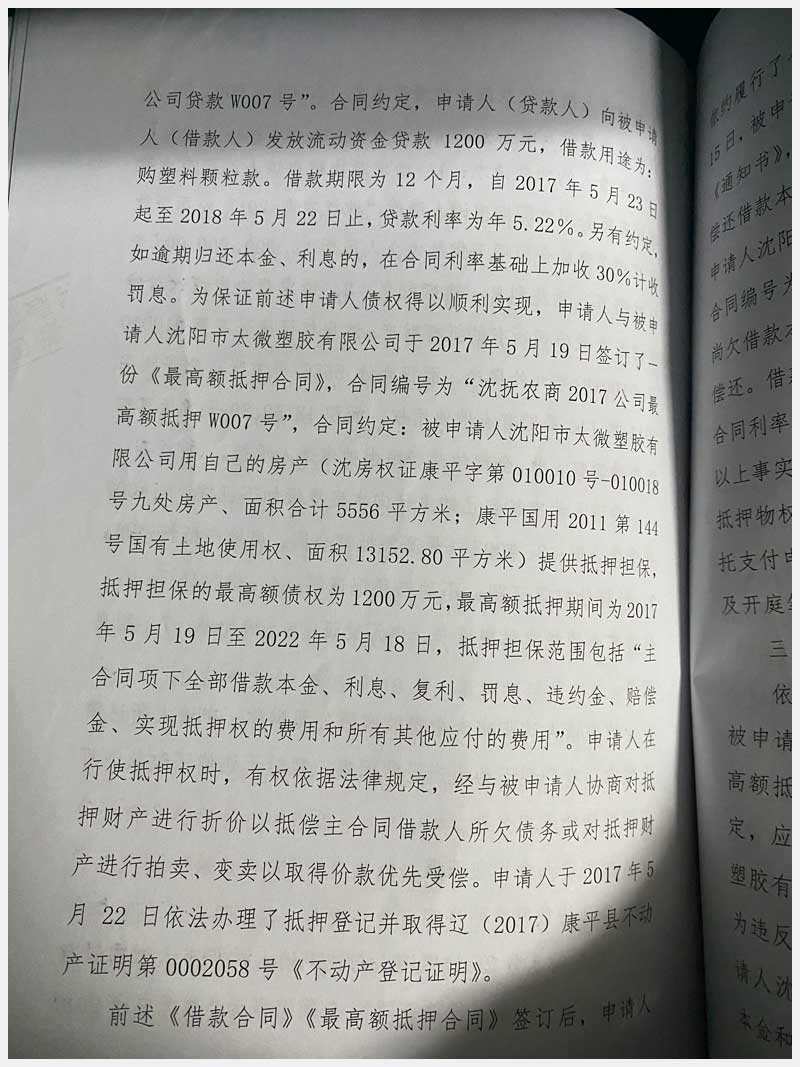 公司贷款W007号”。合同约定，申请人（贷款人）向被申请
人（借款人）发放流动资金贷款 1200 万元，借款用途为：
购塑料颗粒款。借款期限为12个月，自2017年5月23日
起至2018年5月22日止，贷款利率为年5.22%。另有约定，
如逾期归还本金、利息的，在合同利率基础上加收30%计收
罚息。为保证前述申请人债权得以顺利实现，申请人与被申
请人沈阳市太微塑胶有限公司于2017年5月19日签订了一
份《最高额抵押合同》，合同编号为“沈抚农商2017公司最
高额抵押W007号”，合同约定：被申请人沈阳市太微塑胶有
限公司用自己的房产（沈房权证康平字第010010号-010018
号九处房产、面积合计5556平方米；康平国用2011第144
号国有土地使用权、面积13152.80平方米）提供抵押担保，
抵押担保的最高额债权为1200万元，最高额抵押期间为2017
年5月19日至2022年5月18日，抵押担保范围包括“主
合同项下全部借款本金、利息、复利、罚息、违约金、赔偿
金、实现抵押权的费用和所有其他应付的费用”。申请人在
行使抵押权时，有权依据法律规定，经与被申请人协商对抵
押财产进行折价以抵偿主合同借款人所欠债务或对抵押财
产进行拍卖、变卖以取得价款优先受偿。申请人于2017年5
月 22 日依法办理了抵押登记并取得辽（2017）康平县不动
产证明第0002058号《不动产登记证明》。
前述《借款合同》《最高额抵押合同》签订后，申请人
依约履行了
15日，被申
《通知书》，
偿还借款本
申请人沈阳
合同编号为
尚欠借款本
偿还。借
合同利率
以上事实
抵押物权
托支付申
及开庭
三
依
被申请
高额抵
定，应
塑胶有
为违反
请人沈
本金和